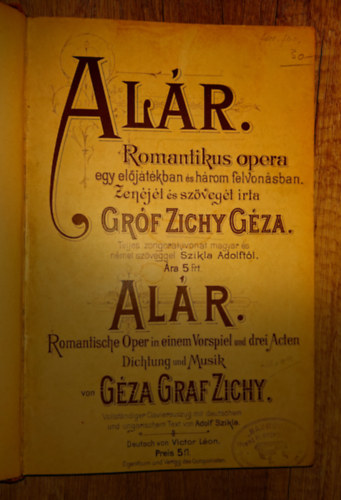 ALÁR.
Romantikus opera
egy előjátékban és három felvonásban.
Zenéjét és szövegét irta
GRÓF ZICHY GÉZA.
Teljes zongorakivonat magyar és
német szöveggel Szikla Adolftól.
Ára 5 frt.
ALÁR.
Romantische Oper in einem Vorspiel und drei Acten
Dichtung und Musik
von GÉZA GRAF ZICHY.
Vollständiger Clavierauszug mit deutschem
und ungarischem Text von Adolf Szikla.
Deutsch von Victor Léon.
Preis 5 fl.
Eigenthum und Verlag des Componisten.